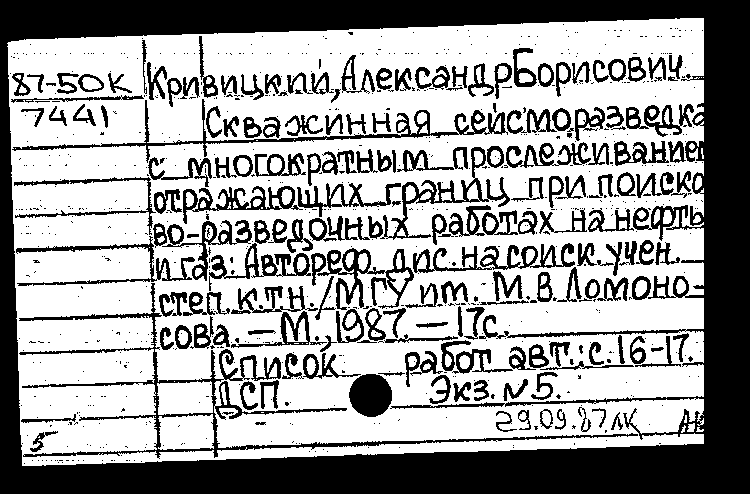 87-50К Кривицкий, Александр Борисович.
7441 Скважинная сейсморазведка
с многократным прослеживанием
отражающих границ при поиско
во-разведочных работах на нефть
и газ: Автореф. дис. на соиск. учен.
степ. к.т.н. / МГУ им. М.В. Ломоно-
сова. — М., 1987. — 17с.
Список работ авт.: с. 16-17.
ДСП. Экз. N 5.
29.09.87 ЛК
5